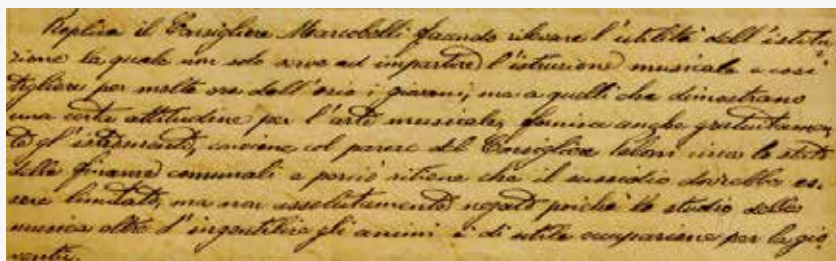 Replica il Consigliere Marcobelli facendo rilevare l'utilità dell'istitu
zione la quale non solo serve ad impartire l'istruzione musicale e così
togliere per molte ore dall'ozio i giovani, ma a quelli che dimostrano
una certa attitudine per l'arte musicale, fornisce anche gratuitamen
te gl'istrumenti, conviene col parere del Consigliere circa lo stato
delle finanze comunali e perciò ritiene che il sussidio dovrebbe es
sere limitato, ma non assolutamente negato poichè lo studio della
musica oltre d'ingentilire gli animi è di utile occupazione per la gio
ventù.